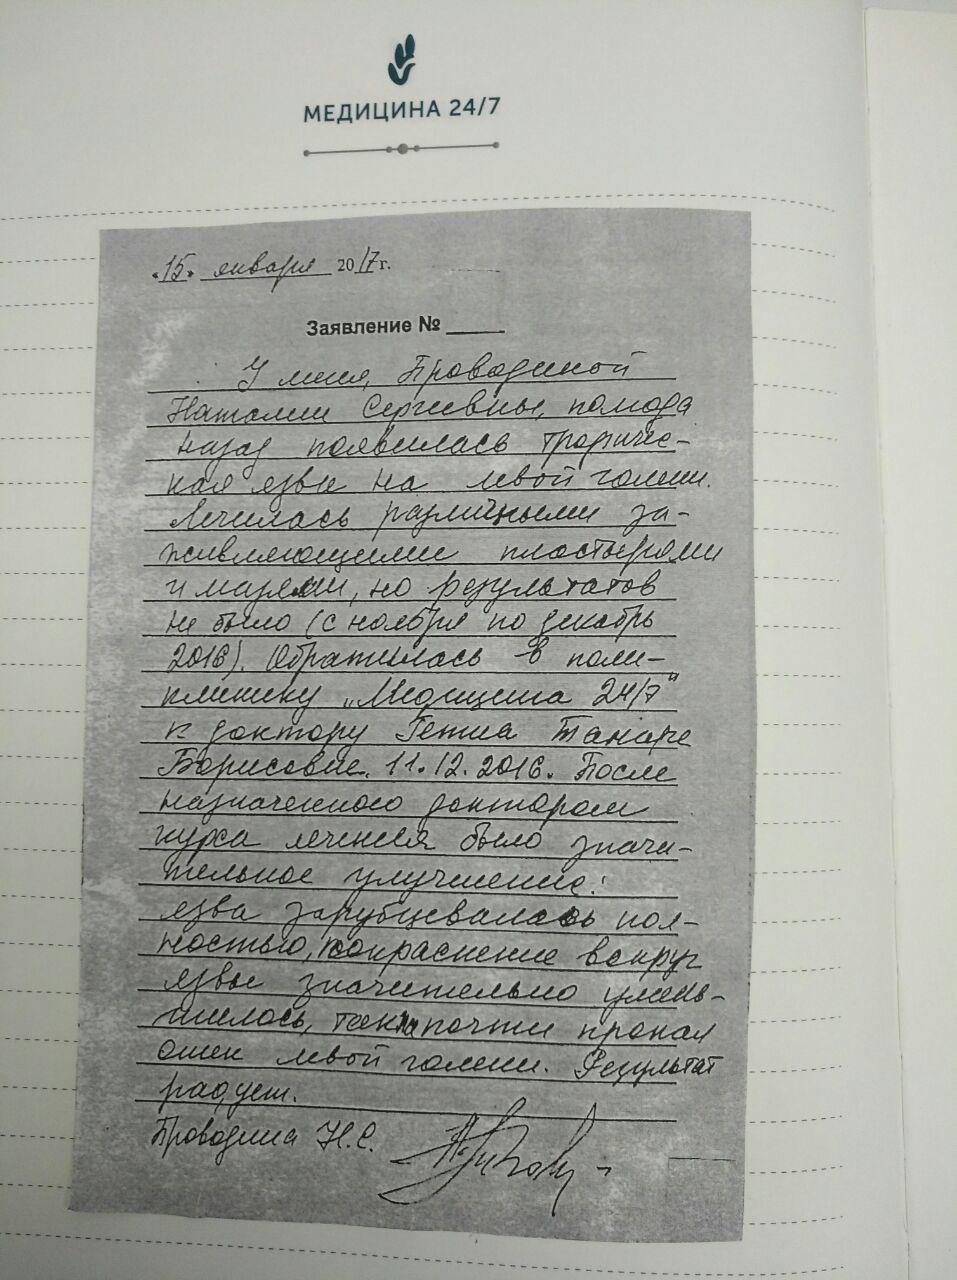 МЕДИЦИНА 24/7
«15» января 2017г.
Заявление №
У меня, Проводиной
Наталии Сергиевны, полгода
назад появилась трофичес-
кая язвы на левой голени.
Лечилась различными за-
живляющими пластырями
и мазями, но результатов
не было (с ноября по декабрь
2016). Обратилась в поли-
клинику „Медицина 24/7"
к доктору Гетиа Тамаре
Борисовне. 11.12.2016. После
назначенного доктором
курса лечения было значи-
тельное улучшение:
язва зарубцевалась пол-
ностью, покраснение вокруг
язвы значительно умень-
шилось, почти пропал
отек левой голени. Результат
радует.
Проводина Н.С.